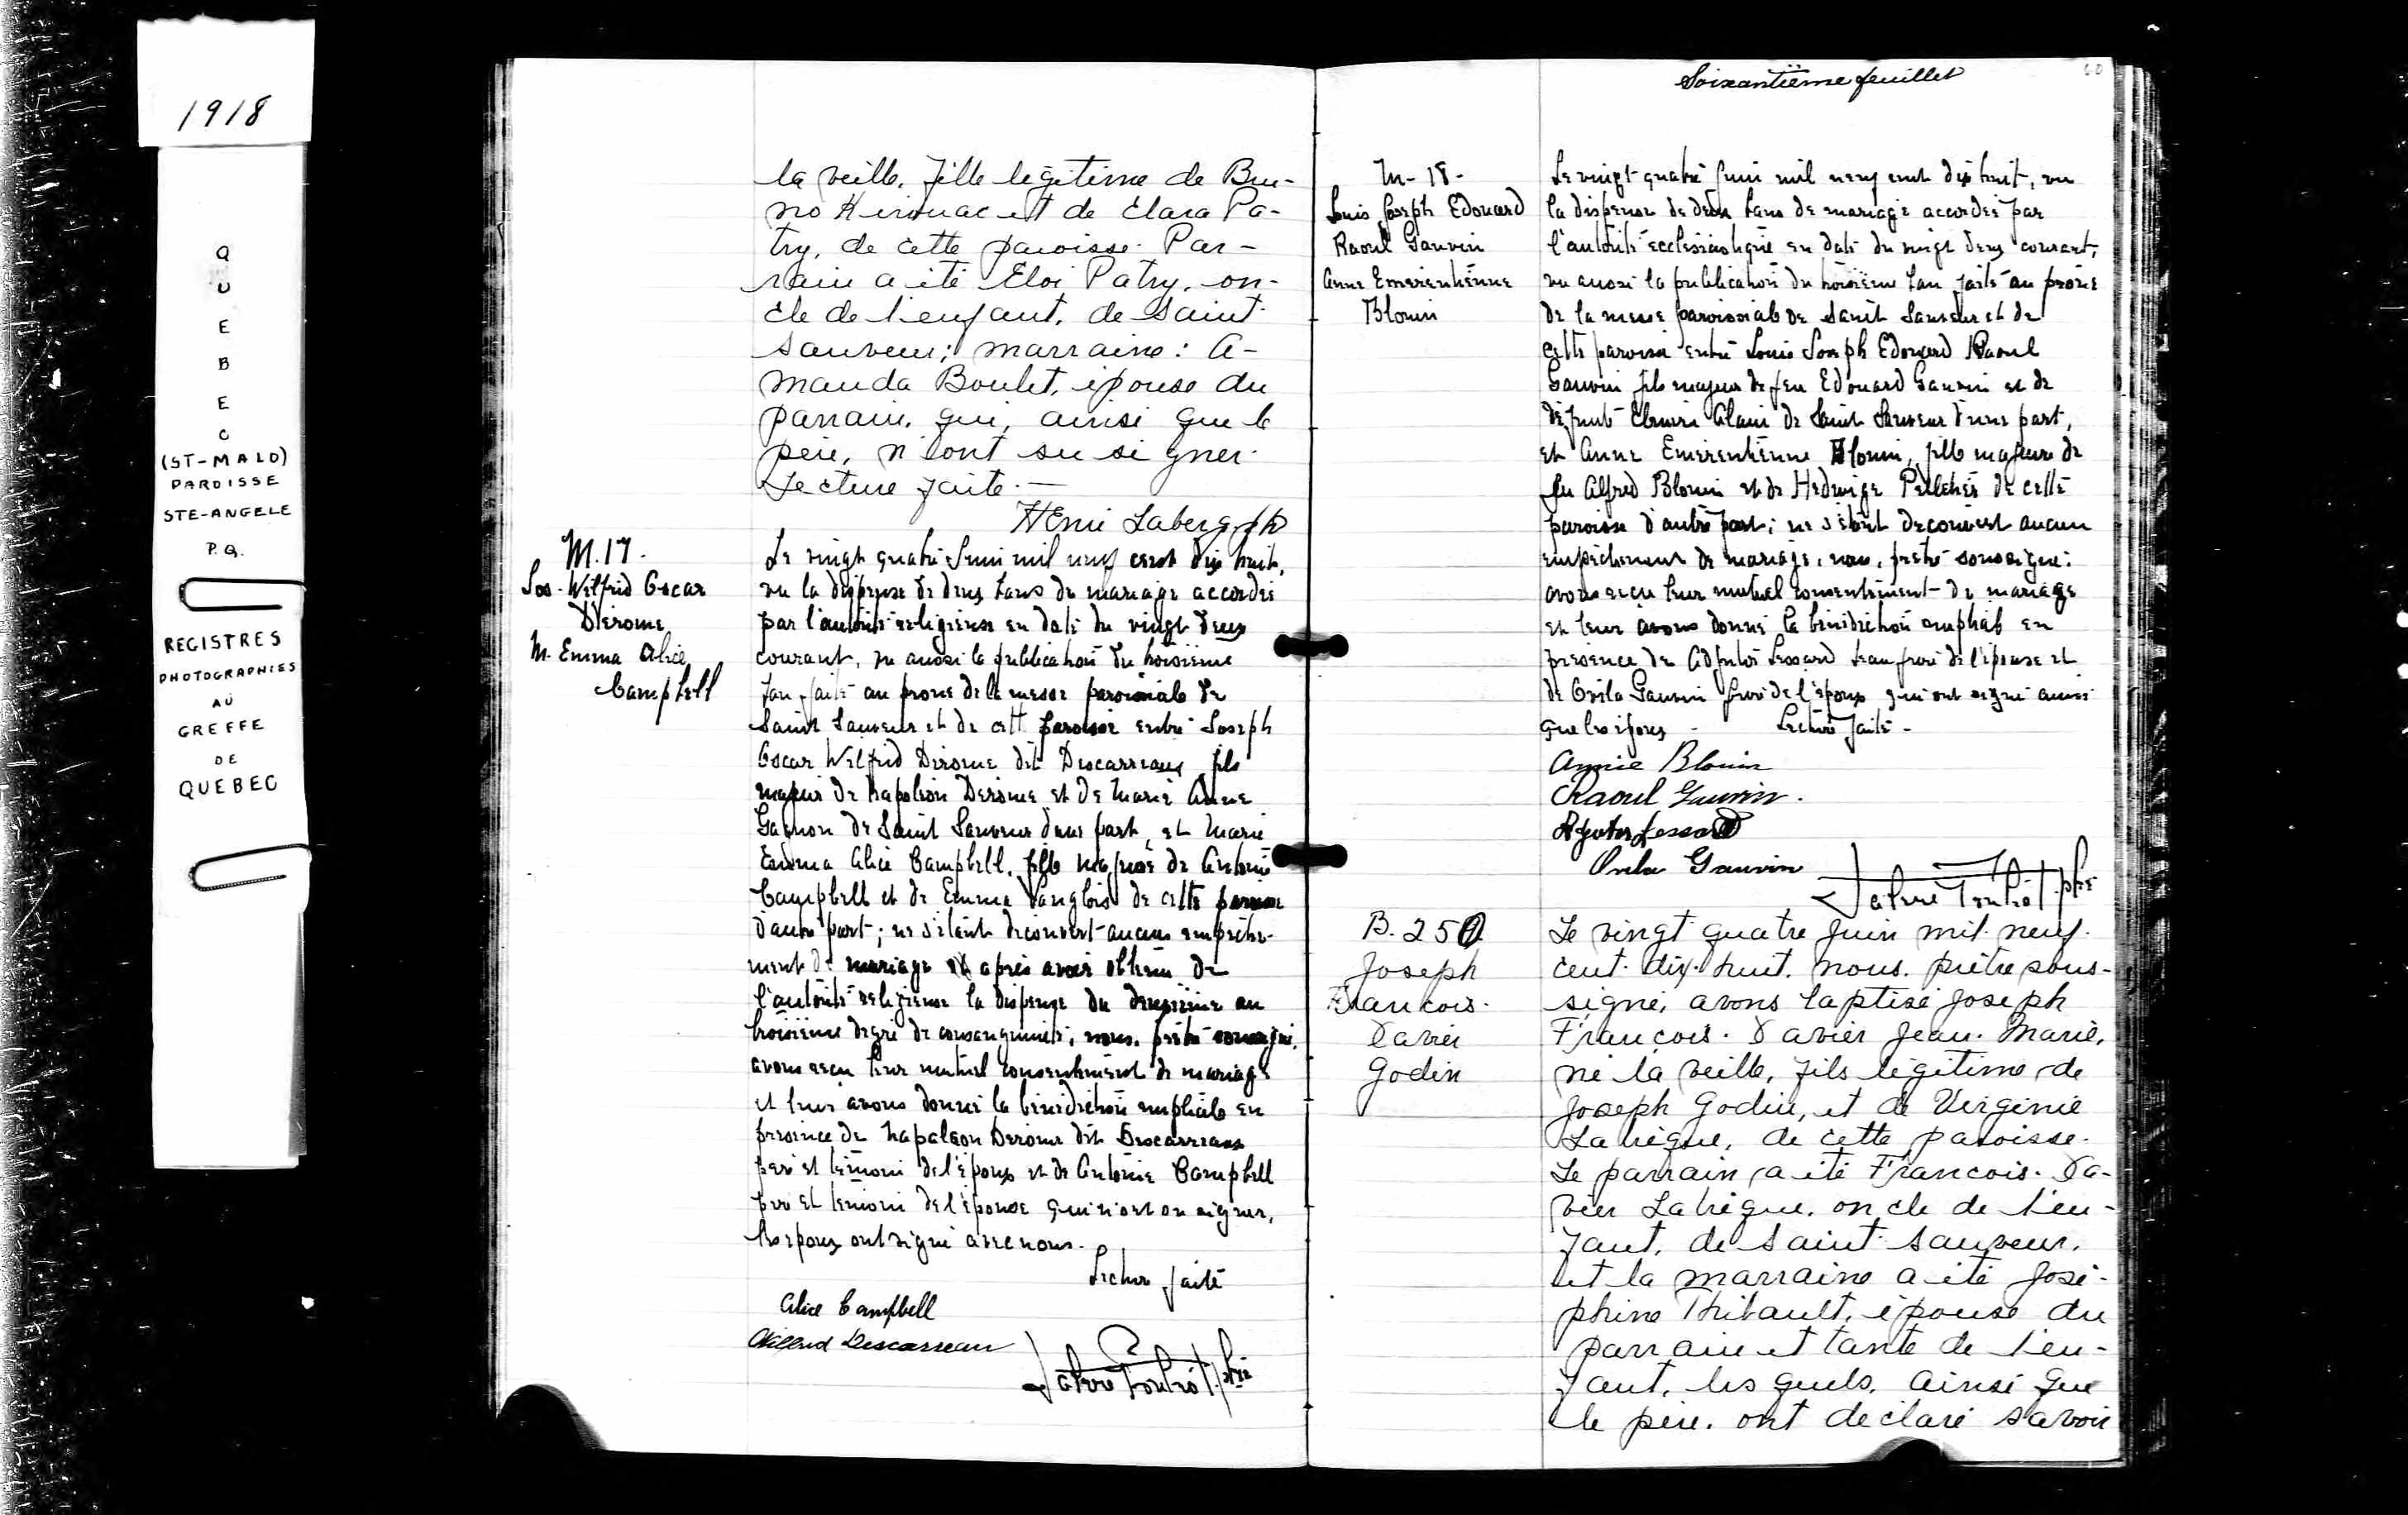 1918
Q
U
E
B
E
C
(ST-MALO)
PAROISSE
STE-ANGELE
P.Q.
REGISTRES
PHOTOGRAPHIES
AU
GREFFE
DE
QUEBEC
la veille, fille légitime de Bru-
no Kirouac et de Clara Pa-
try, de cette paroisse. Par-
rain a été Eloi Patry, on-
cle de l'enfant, de Saint-
Sauveur; marraine: A-
manda Boulet, épouse du
parrain, qui, ainsi que le
père, n'ont su signer.
Lecture faite.—
HEnri Laberge ptr
M. 17.
Jos-Wilfrid Oscar
Dérome
M. Emma Alice
Campbell
Le vingt quatre Juin mil neuf cent dix huit,
vu la dispense de deux bans de mariage accordée
par l'autorité religieuse en date du vingt deux
courant, vu aussi la publication du troisième
ban faite au prone de la messe paroissiale de
Saint Sauveur et de cette paroisse entre Joseph
Oscar Wilfrid Dérome dit Descarreaux fils
majeur de Napoléon Dérome et de Marie Anne
Gagnon de Saint Sauveur d'une part, et Marie
Emma Alice Campbell, fille majeure de Antoine
Campbell et de Emma Langlois de cette paroisse
d'autre part; ne s'étant découvert aucun empêche-
ment de mariage et après avoir obtenu de
l'autorité religieuse la dispense du deuxième au
troisième degré de consanguinité, nous, prêtre soussigné,
avons reçu leur mutuel consentement de mariage
et leur avons donné la bénédiction nuptiale en
présence de Napoléon Dérome dit Descarreaux
père et témoin de l'époux et de Antoine Campbell
père et témoin de l'épouse qui n'ont su signer,
les époux ont signé avec nous.
Lecture faite
Alice Campbell
Wilfrid Descarreau
ptre
Soixantième feuillet
60
M-18-
Louis Joseph Edouard
Raoul Gauvin
Anne Emérentienne
Blouin
Le vingt-quatre Juin mil neuf cent dix huit, vu
la dispense de deux bans de mariage accordée par
l'autorité ecclésiastique en date du vingt deux courant,
vu aussi la publication du troisième ban faite au prône
de la messe paroissiale de Saint Sauveur et de
cette paroisse entre Louis Joseph Edouard Raoul
Gauvin fils majeur de feu Edouard Gauvin et de
défunte Elmire Alain de Saint Sauveur d'une part,
et Anne Emérentienne Blouin, fille majeure de
feu Alfred Blouin et de Hedwige Pelletier de cette
paroisse d'autre part; ne s'étant découvert aucun
empêchement de mariage, nous, prêtre soussigné:
avons reçu leur mutuel consentement de mariage
et leur avons donné la bénédiction nuptiale en
présence de Adjutor Lessard beau frère de l'épouse et
de Ovila Gauvin frère de l'époux qui ont signé ainsi
que les époux - Lecture faite -
Annie Blouin
Raoul Gauvin.
Adjutor Lessard
Ovila Gauvin
ptre
B. 250
Joseph
Francois.
Xavier
Godin
Le vingt quatre Juin mil-neuf-
cent-dix-huit, nous, prêtre sous-
signé, avons baptisé Joseph
François-Xavier Jean-Marie,
né la veille, fils légitime de
Joseph Godin, et de Virginie
Labrègue, de cette paroisse.
Le parrain a été Francois-Xa-
vier Labrègue, oncle de l'en-
fant, de Saint-Sauveur,
et la marraine a été José-
phine Thibault, épouse du
parrain et tante de l'en-
fant, lesquels, ainsi que
le père, ont déclaré savoir